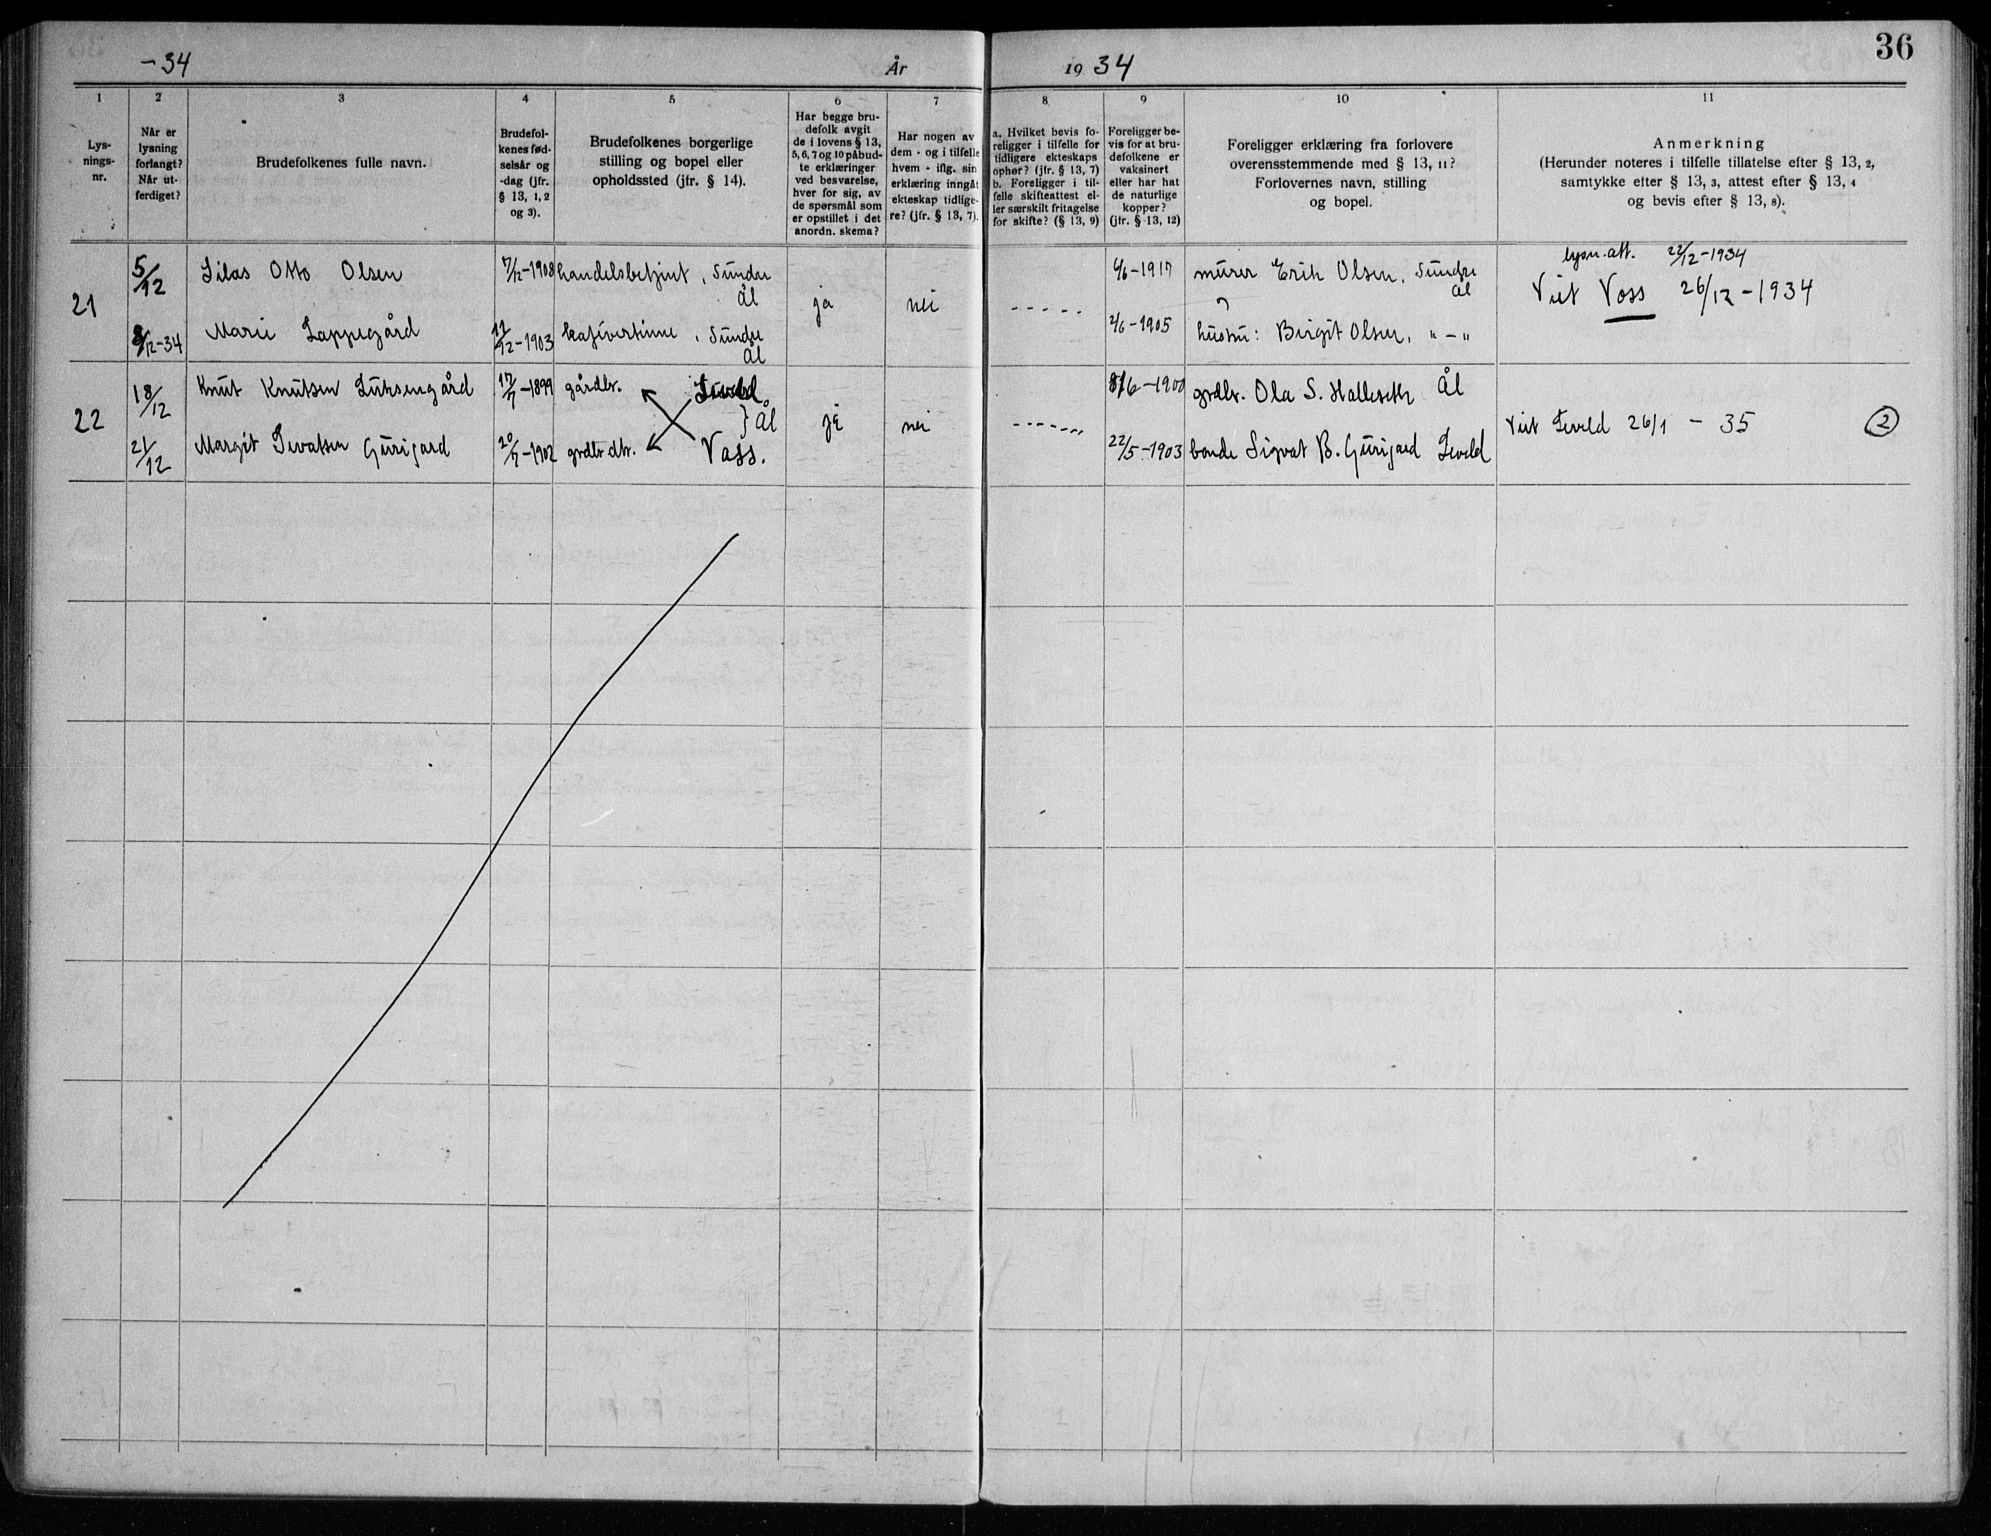 -34
År
19 34
36
1
2
3
4
5
6
7
8
9
10
11
Lys-
nings-
nr.
Når er
lysning
forlangt?
Når ut-
ferdiget?
Brudefolkenes fulle navn.
Brudefol-
kenes fød-
selsår og
-dag (jfr.
§ 13, 1, 2
og 3).
Brudefolkenes borgerlige
stilling og bopel eller
opholdssted (jfr. § 14).
Har begge bru-
defolk avgit
de i lovens § 13,
5, 6, 7 og 10 påbud-
te erklæringer
ved besvarelse,
hver for sig, av
de spørsmål som
er opstillet i det
anordn. skema?
Har nogen av
dem - og i tilfelle
hvem - iflg. sin
erklæring inngåt
ekteskap tidlige-
re? (jfr. § 13, 7).
a. Hvilket bevis fo-
religger i tilfelle for
tidligere ekteskaps
ophør? (jfr. § 13, 7)
b. Foreligger i til-
felle skifteattest el-
ler særskilt fritagelse
for skifte? (§ 13, 9)
Foreligger be-
vis for at bru-
defolkene er
vaksinert
eller har hat
de naturlige
kopper?
(jfr. § 13, 12)
Foreligger erklæring fra forlovere
overensstemmende med § 13, 11?
Forlovernes navn, stilling
og bopel.
Anmerkning
(Herunder noteres i tilfelle tillatelse efter § 13, 2,
samtykke efter § 13, 3, attest efter § 13, 4
og bevis efter § 13, 8).
21
5/12
Silas Otto Olsen
7/12-1908
handelsbetjent, Sundre
Ål
ja
nei
-----
4/6-1917
murer Erik Olsen, Sundre
Ål
lysn.att. 22/12-1934
Viet Voss 26/12-1934
8/12-34
Marie Lappegård
11/12-1903
kafévertinne, Sundre
Ål
2/6-1905
hustru: Birgit Olsen, "-"
22
18/12
Knut Knutsen Luksengård
17/7-1899
gårdbr.
Leveld
} Ål
ja
nei
------
8/6-1900
grdbr. Ola S. Halleseth Ål
Viet Leveld 26/1 - 35
2
21/12
Margit Sevatsen Gurigard
20/7-1902
grdbr.dtr.
Vass.
22/5-1903
bonde Sigvat B. Gurigard Leveld